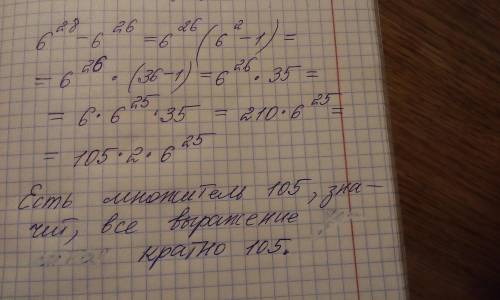 6²⁸ - 6²⁶ = 6²⁶ (6² - 1) =
= 6²⁶ · (36 - 1) = 6²⁶ · 35 =
= 6 · 6²⁵ · 35 = 210 · 6²⁵ =
= 105 · 2 · 6²⁵
Есть множитель 105, зна-
чит, все выражение
кратно 105.